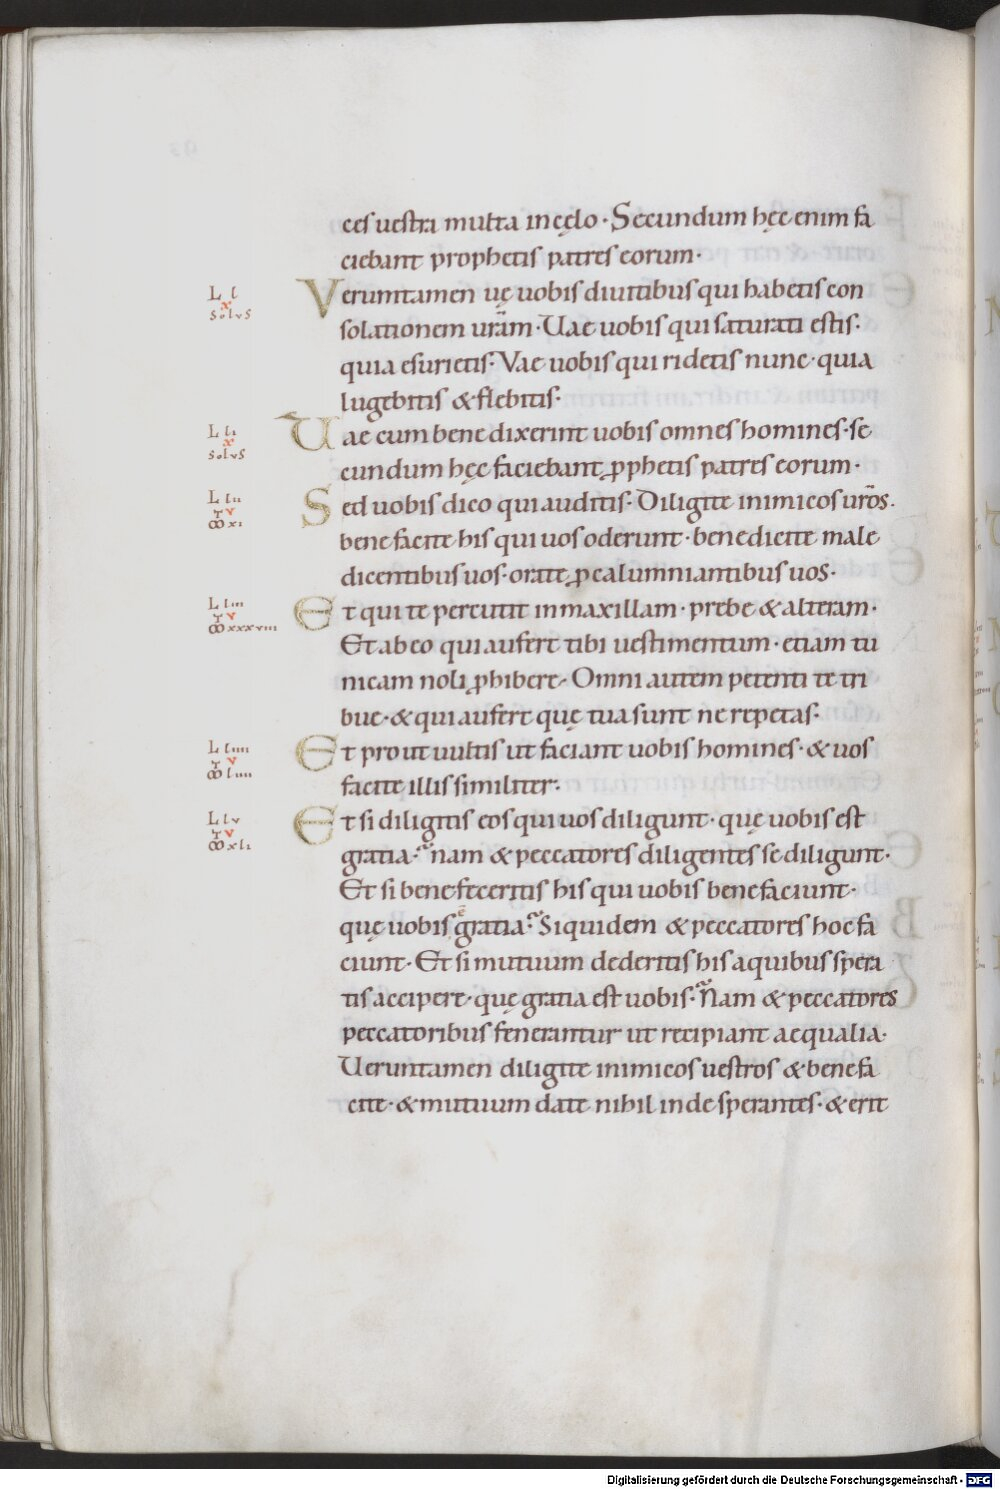 ces uestra multa in cęlo · Secundum hęc enim fa
ciebant prophetis patres eorum ·
L l
x
SolvS
Verumtamen uę uobis diuitibus qui habetis con
solationem ur̄am · Uae uobis qui saturati estis ·
quia esurietis · Vae uobis qui ridetis nunc · quia
lugebitis & flebitis ·
L li
x
SolvS
Uae cum bene dixerint uobis omnes homines · se
cundum hęc faciebant ꝓphetis patres eorum ·
L lii
v
xi
Sed uobis dico qui auditis · Diligite inimicos ur̄os ·
bene facite his qui uos oderunt · benedicite male
dicentibus uos · orate ꝓ calumniantibus uos ·
L liii
v
xxxviii
Et qui te percutit in maxillam · prebe & alteram ·
Et ab eo qui aufert tibi uestimentum · etiam tu
nicam noli ꝓhibere · Omni autem petenti te tri
bue · & qui aufert quę tua sunt ne repetas ·
L liiii
v
liiii
Et prout uultis ut faciant uobis homines · & uos
facite illis similiter ·
L lv
v
xli
Et si diligitis eos qui uos diligunt · quę uobis est
gratia · nam & peccatores diligentes se diligunt ·
Et si bene feceritis his qui uobis bene faciunt ·
quę uobis ē gratia · Siquidem & peccatores hoc fa
ciunt · Et si mutuum dederitis his a quibus spera
tis accipere · quę gratia est uobis · Nam & peccatores
peccatoribus fenerantur ut recipiant aequalia ·
Ueruntamen diligite inimicos uestros & benefa
cite · & mutuum date nihil inde sperantes · & erit
Digitalisierung gefördert durch die Deutsche Forschungsgemeinschaft - DFG